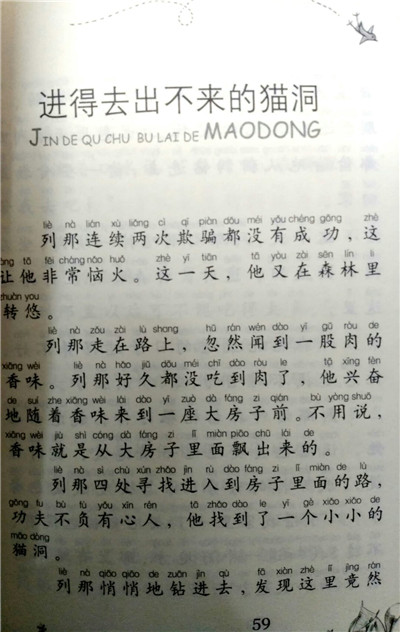 进得去出不来的猫洞
JIN DE QU CHU BU LAI DE MAODONG
liè nà lián xù liǎng cì qī piàn dōu méi yǒu chéng gōng zhè
列那连续两次欺骗都没有成功，这
ràng tā fēi cháng nǎo huǒ zhè yì tiān tā yòu zài sēn lín lǐ
让他非常恼火。这一天，他又在森林里
zhuàn you
转悠。
liè nà zǒu zài lù shang hū rán wén dào yì gǔ ròu de
列那走在路上，忽然闻到一股肉的
xiāng wèi liè nà hǎo jiǔ dōu méi chī dào ròu le tā xīng fèn
香味。列那好久都没吃到肉了，他兴奋
de suí zhe xiāng wèi lái dào yí zuò dà fáng zi qián bú yòng shuō
地随着香味来到一座大房子前。不用说，
xiāng wèi jiù shì cóng dà fáng zi lǐ miàn piāo chū lái de
香味就是从大房子里面飘出来的。
liè nà sì chù xún zhǎo jìn rù dào fáng zi lǐ miàn de lù
列那四处寻找进入到房子里面的路，
gōng fu bú fù yǒu xīn rén tā zhǎo dào le yí gè xiǎo xiǎo de
功夫不负有心人，他找到了一个小小的
māo dòng
猫洞。
liè nà qiāo qiāo de zuān jìn qù fā xiàn zhè lǐ jìng rán
列那悄悄地钻进去，发现这里竟然
59